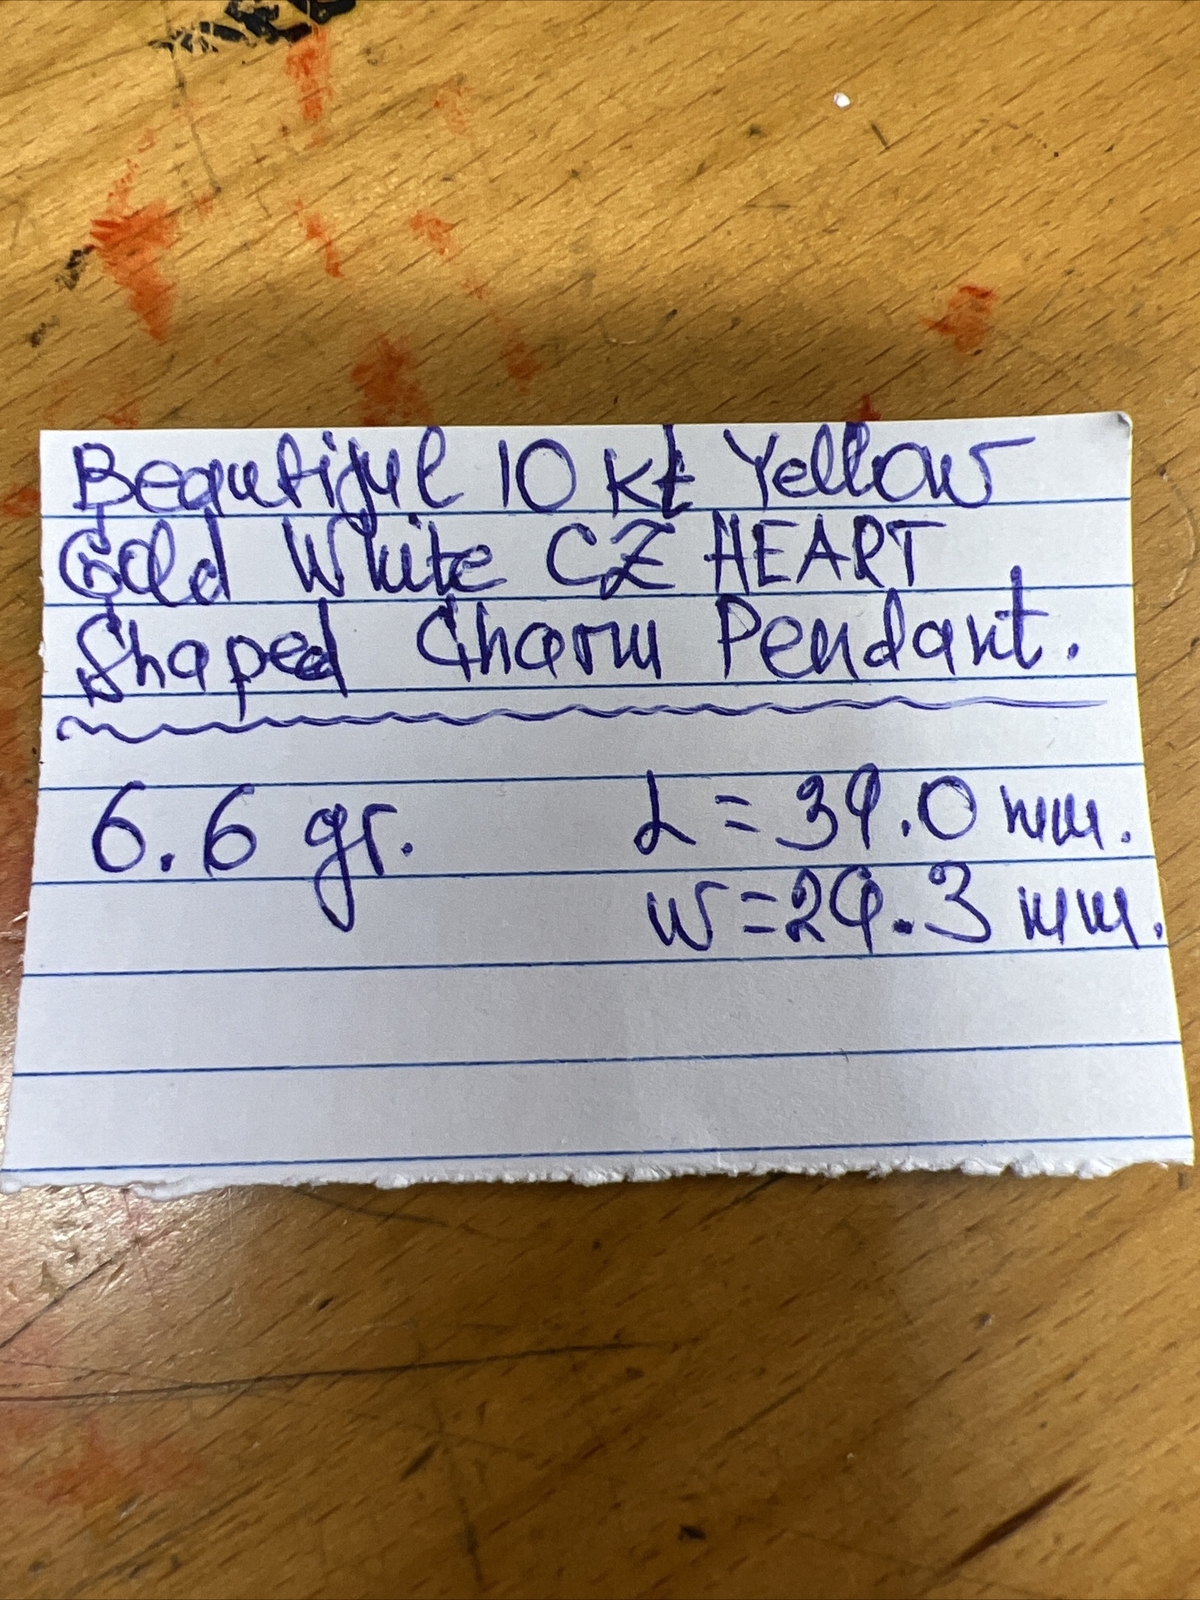 Beautiful 10 kt Yellow
Gold White CZ HEART
Shaped Charm Pendant.
6.6 gr. L = 39.0 mm.
W = 29.3 mm.